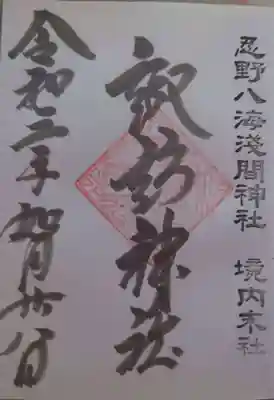 忍野八海淺間神社　境内末社
諏訪神社
令和二年如月廿八日